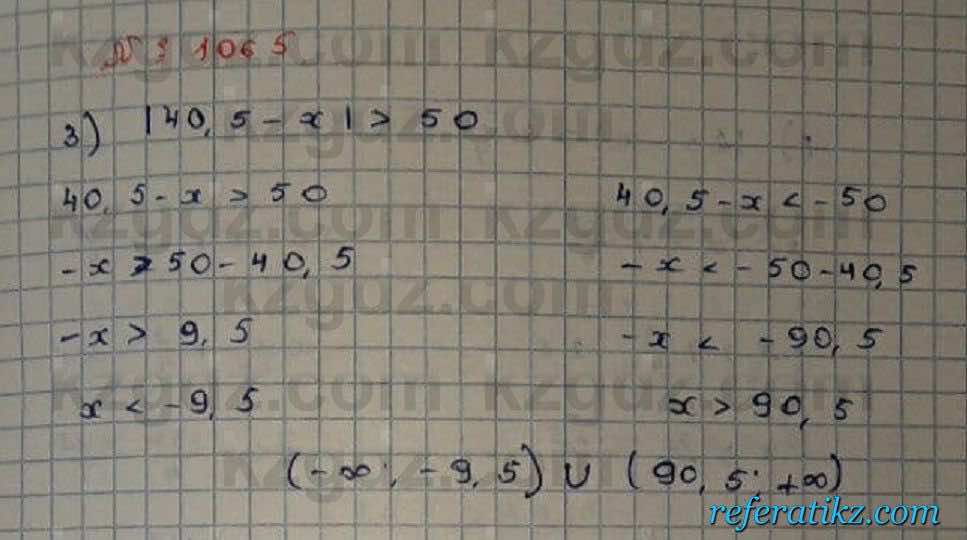 № 1065
3) |40,5-x|>50
40,5-x>50 40,5-x<-50
-x>50-40,5 -x<-50-40,5
-x>9,5 -x<-90,5
x<-9,5 x>90,5
(-∞;-9,5)∪(90,5;+∞)
referatikz.com
kzgdz.com kzgdz.com
kzgdz.com
kzgdz.com kzgdz.com
kzgdz.com
kzgdz.com kzgdz.com